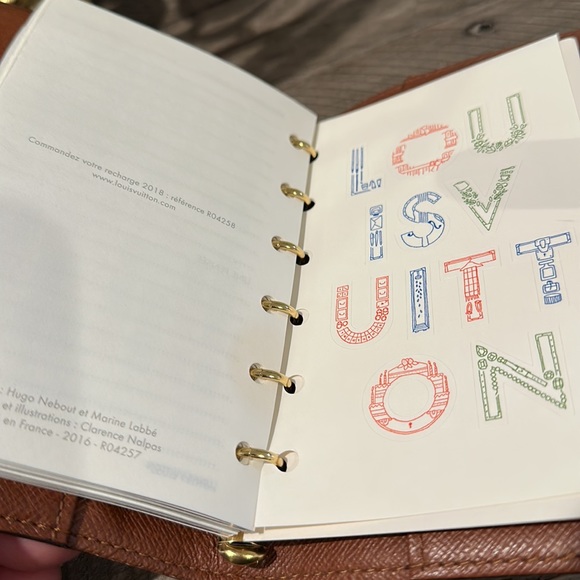 Commandez votre recharge 2018 : référence R04258
www.louisvuitton.com
: Hugo Nebout et Marine Labbé
et illustrations : Clarence Nalpas
en France - 2016 - R04257
LOU
ISV
UITT
ON